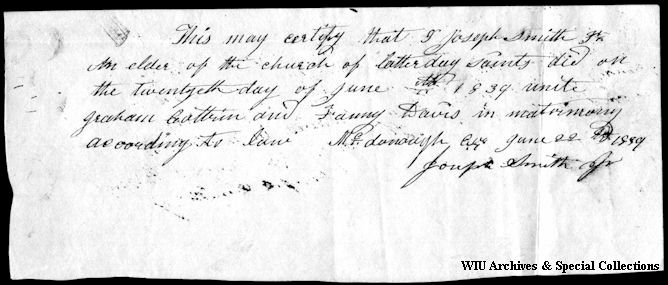 This may certify that I Joseph Smith Jr
An elder of the church of latter day Saints did on
the twentyeth day of June 1839 unite
graham Cottrin and Fanny Davis in matrimony
according to law Mc donough June 22 1839
Joseph Smith Jr
WIU Archives & Special Collections